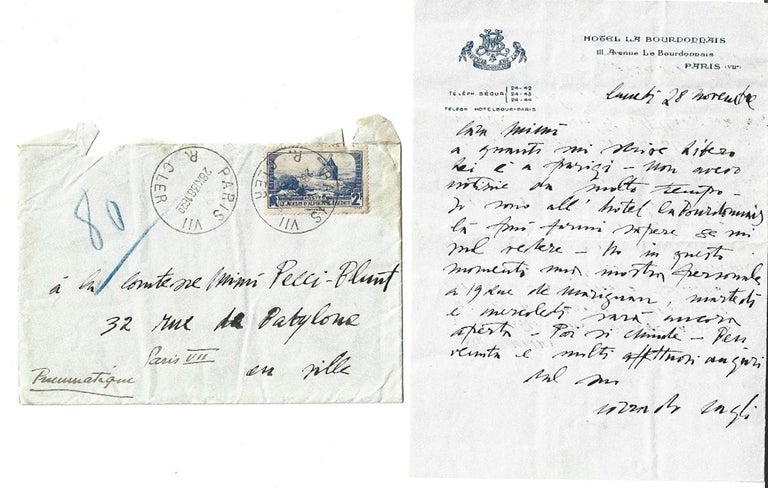 80
PARIS VII
R. CLER
PARIS VII
R. CLER
2F
à la comtesse Mimì Pecci-Blunt
32 rue de Babylone
Paris VII
en ville
Pneumatique
HOTEL LA BOURDONNAIS
111, Avenue La Bourdonnais
PARIS (VIIe)
TÉLÉPH SÉGUR
24-42
24-43
24-44
TÉLÉGR HOTELBOUR-PARIS
lunedì 28 novembre
Cara Mimì
a quanto mi scrive Libero
Lei è a Parigi - Non avevo
notizie da molto tempo -
Io sono all' hotel La Bourdonnais
se mi
vuol vedere - Ho in questi
momenti una mostra personale
a 19 rue de Marignan, martedì
e mercoledì sarà ancora
aperta - Poi si chiude - Ben
venuta e molti affettuosi auguri
dal suo
Corrado Cagli